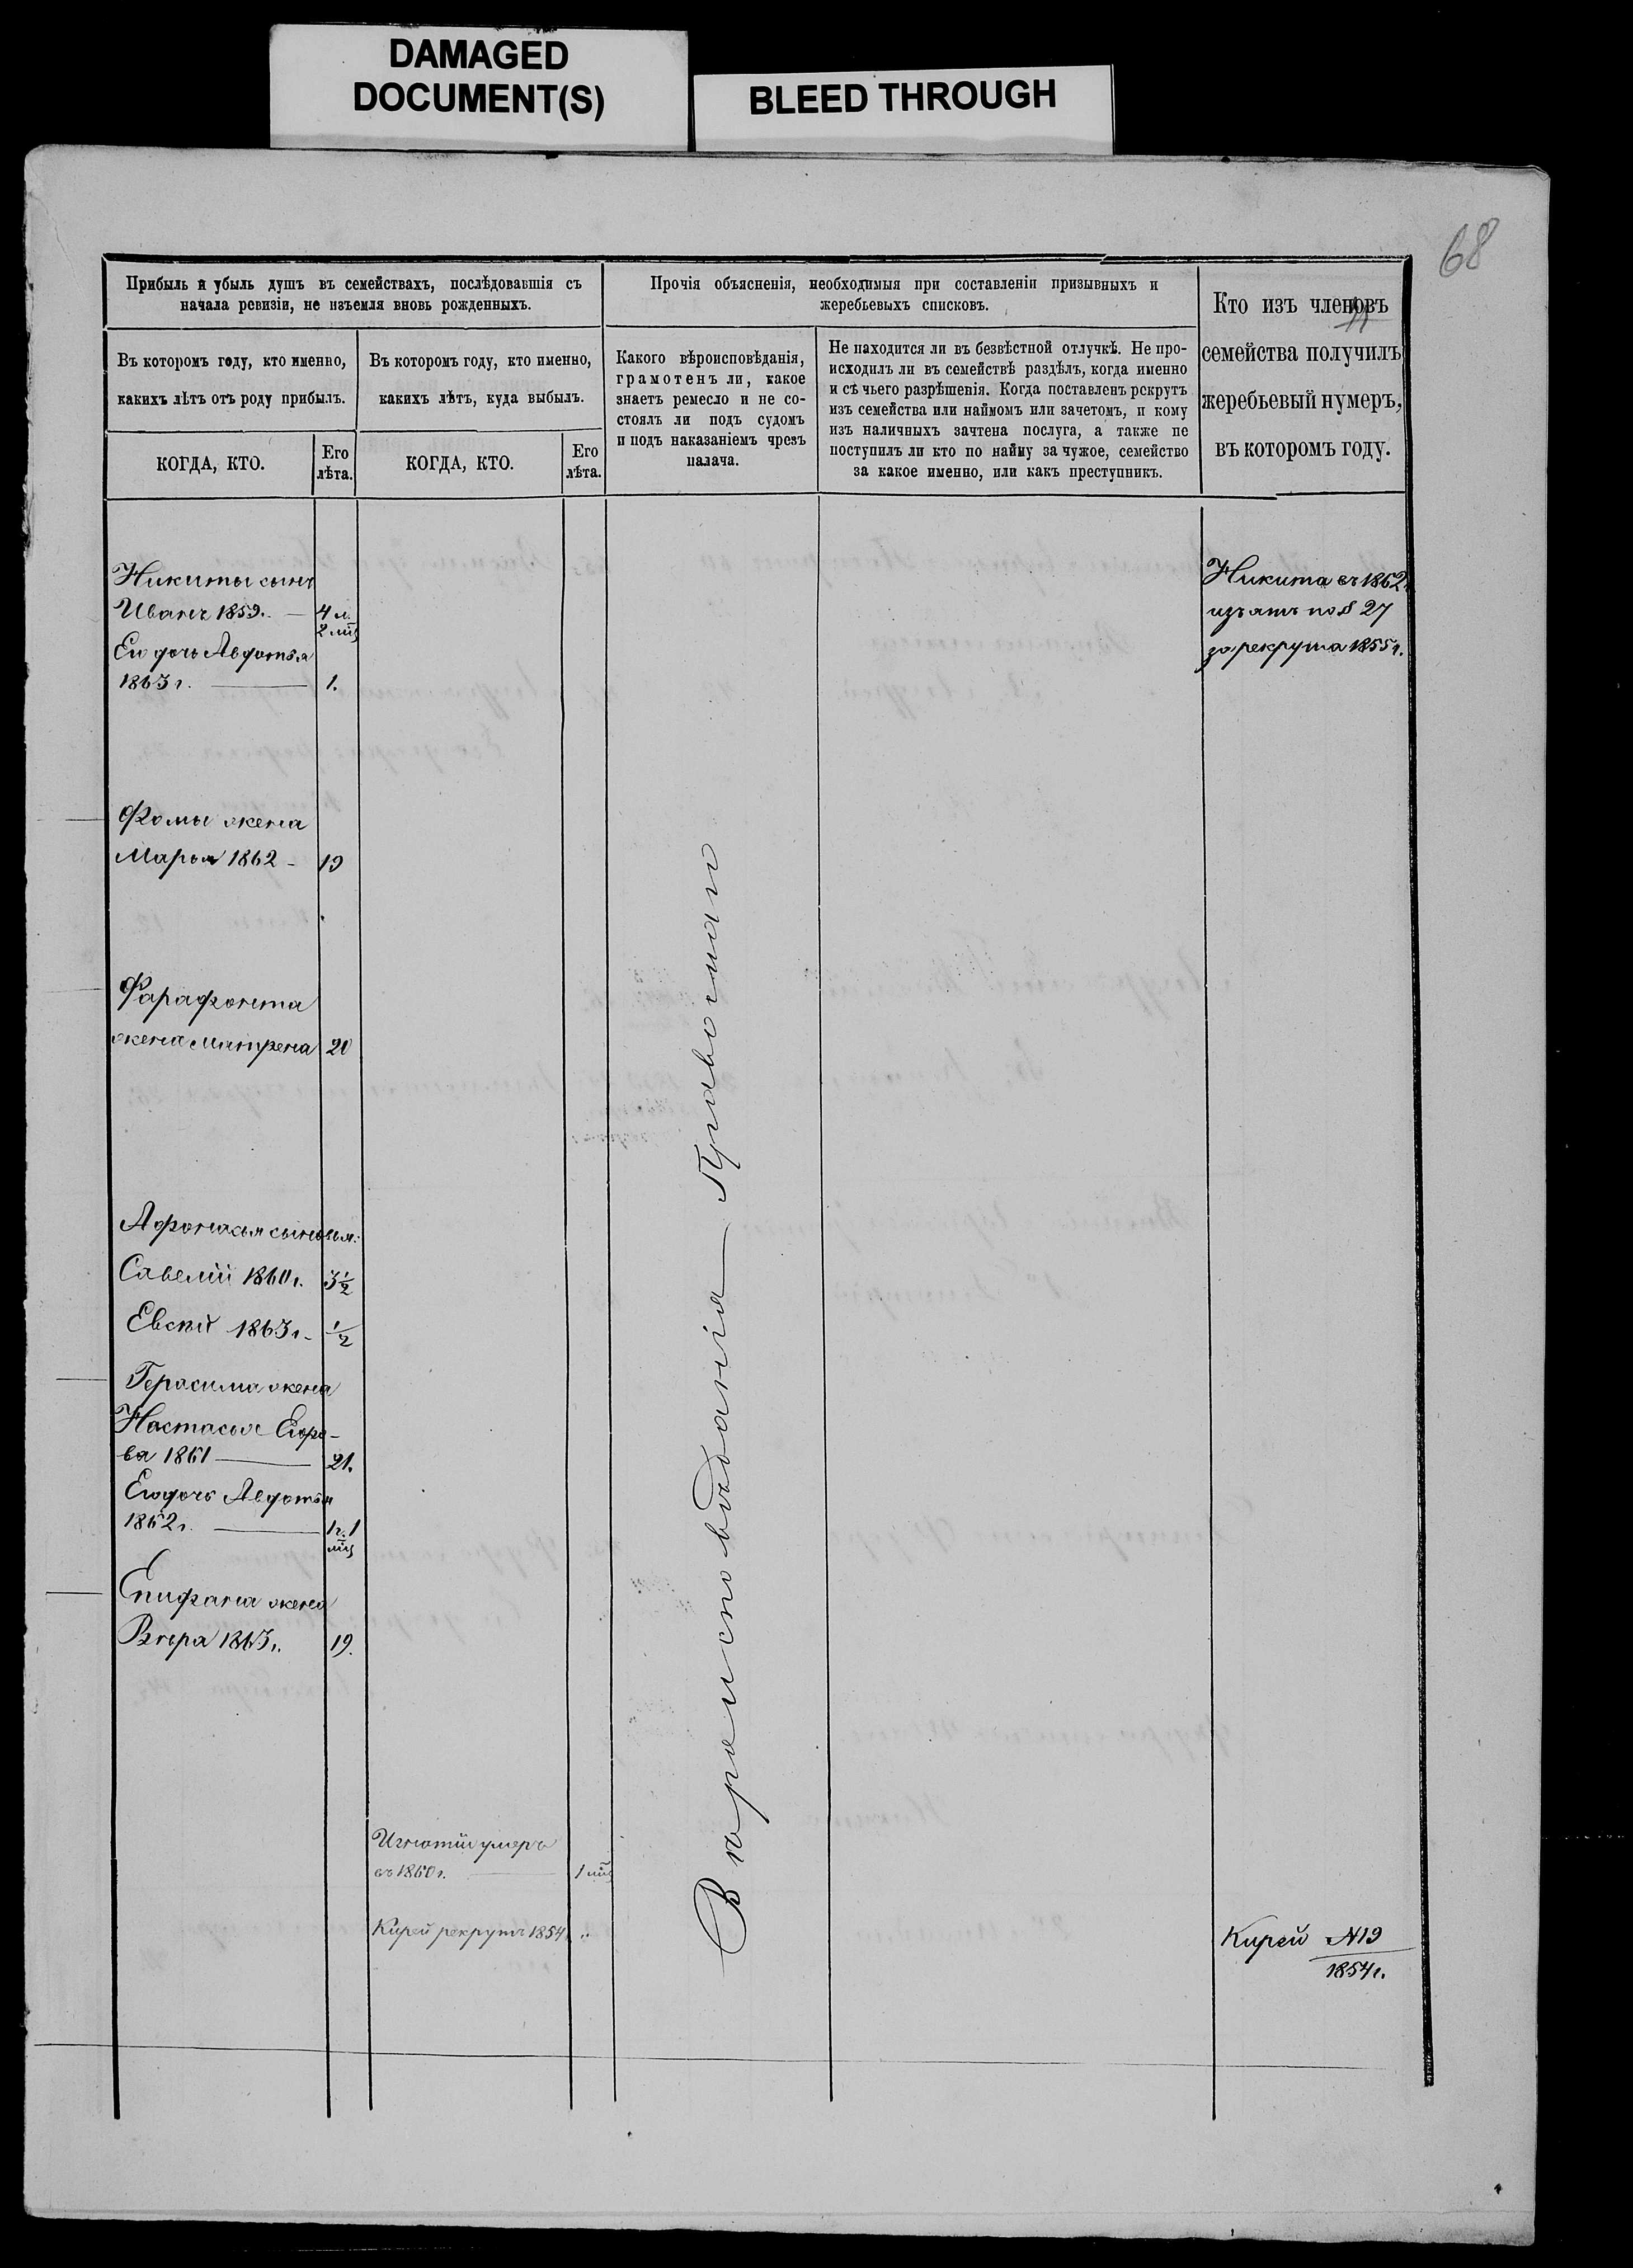 DAMAGED
DOCUMENT(S)
BLEED THROUGH
68
Прибыль и убыль душъ въ семействахъ, послѣдовавшія съ
начала ревизіи, не изъемля вновь рожденныхъ.
Въ которомъ году, кто именно,
какихъ лѣтъ отъ роду прибылъ.
КОГДА, КТО.
Его
лѣта.
Въ которомъ году, кто именно,
какихъ лѣтъ, куда выбылъ.
КОГДА, КТО.
Его
лѣта.
Прочія объясненія, необходимыя при составленіи призывныхъ и
жеребьевыхъ списковъ.
Какого вѣроисповѣданія,
грамотенъ ли, какое
знаетъ ремесло и не со-
стоялъ ли подъ судомъ
и подъ наказаніемъ чрезъ
палача.
Не находится ли въ безвѣстной отлучкѣ. Не про-
исходилъ ли въ семействѣ раздѣлъ, когда именно
и съ чьего разрѣшенія. Когда поставленъ рекрутъ
изъ семейства или наймомъ или зачетомъ, и кому
изъ наличныхъ зачтена послуга, а также не
поступилъ ли кто по найму за чужое, семейство
за какое именно, или какъ преступникъ.
Кто изъ членовъ
семейства получилъ
жеребьевый нумеръ,
въ которомъ году.
Никиты сынъ
Иванъ 1859. — 4 л.
2 мц
Ею дочь Авдотья
1863 г. — 1.
Фомы жена
Марья 1862 - 19
Фарафонта
жена Матрена 20
Афонасья сыновья:
Савелій 1860 г. 3 1/2
Евсѣй 1863 г. - 1/2
Герасима жена
Настасья Егоро-
ва 1861 — 21.
Ею дочь Авдотья
1862 г. — 1 г. 1
мц
Епифана жена
Вѣра 1863 г. 19.
Игнатій умеръ
въ 1860 г. — 1 мц
Кирей рекрутъ 1854 "
Вѣроисповѣданія Православн
Никита въ 1862 г.
изъятъ по § 27
за рекрута 1855 г.
Кирей N 19
1854 г.